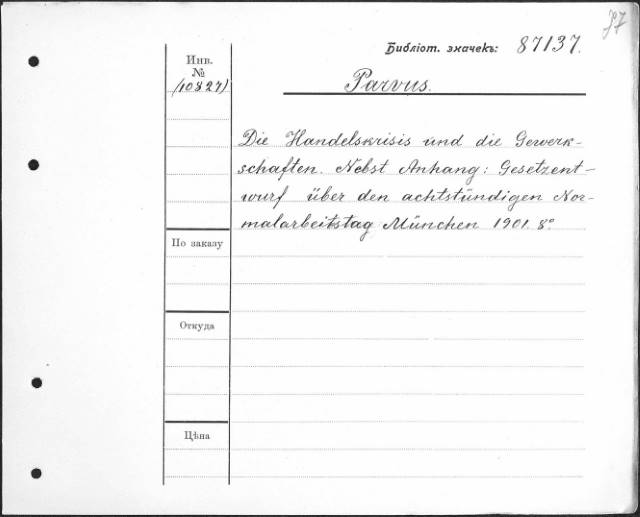 97
Библіот. значекъ: 87137.
Инв.
№
(10827)
Parvus.
Die Handelskrisis und die Gewerk-
schaften. Nebst Anhang: Gesetzent-
wurf über den achtstündigen Nor-
malarbeitstag München 1901. 8°
По заказу
Откуда
Цѣна